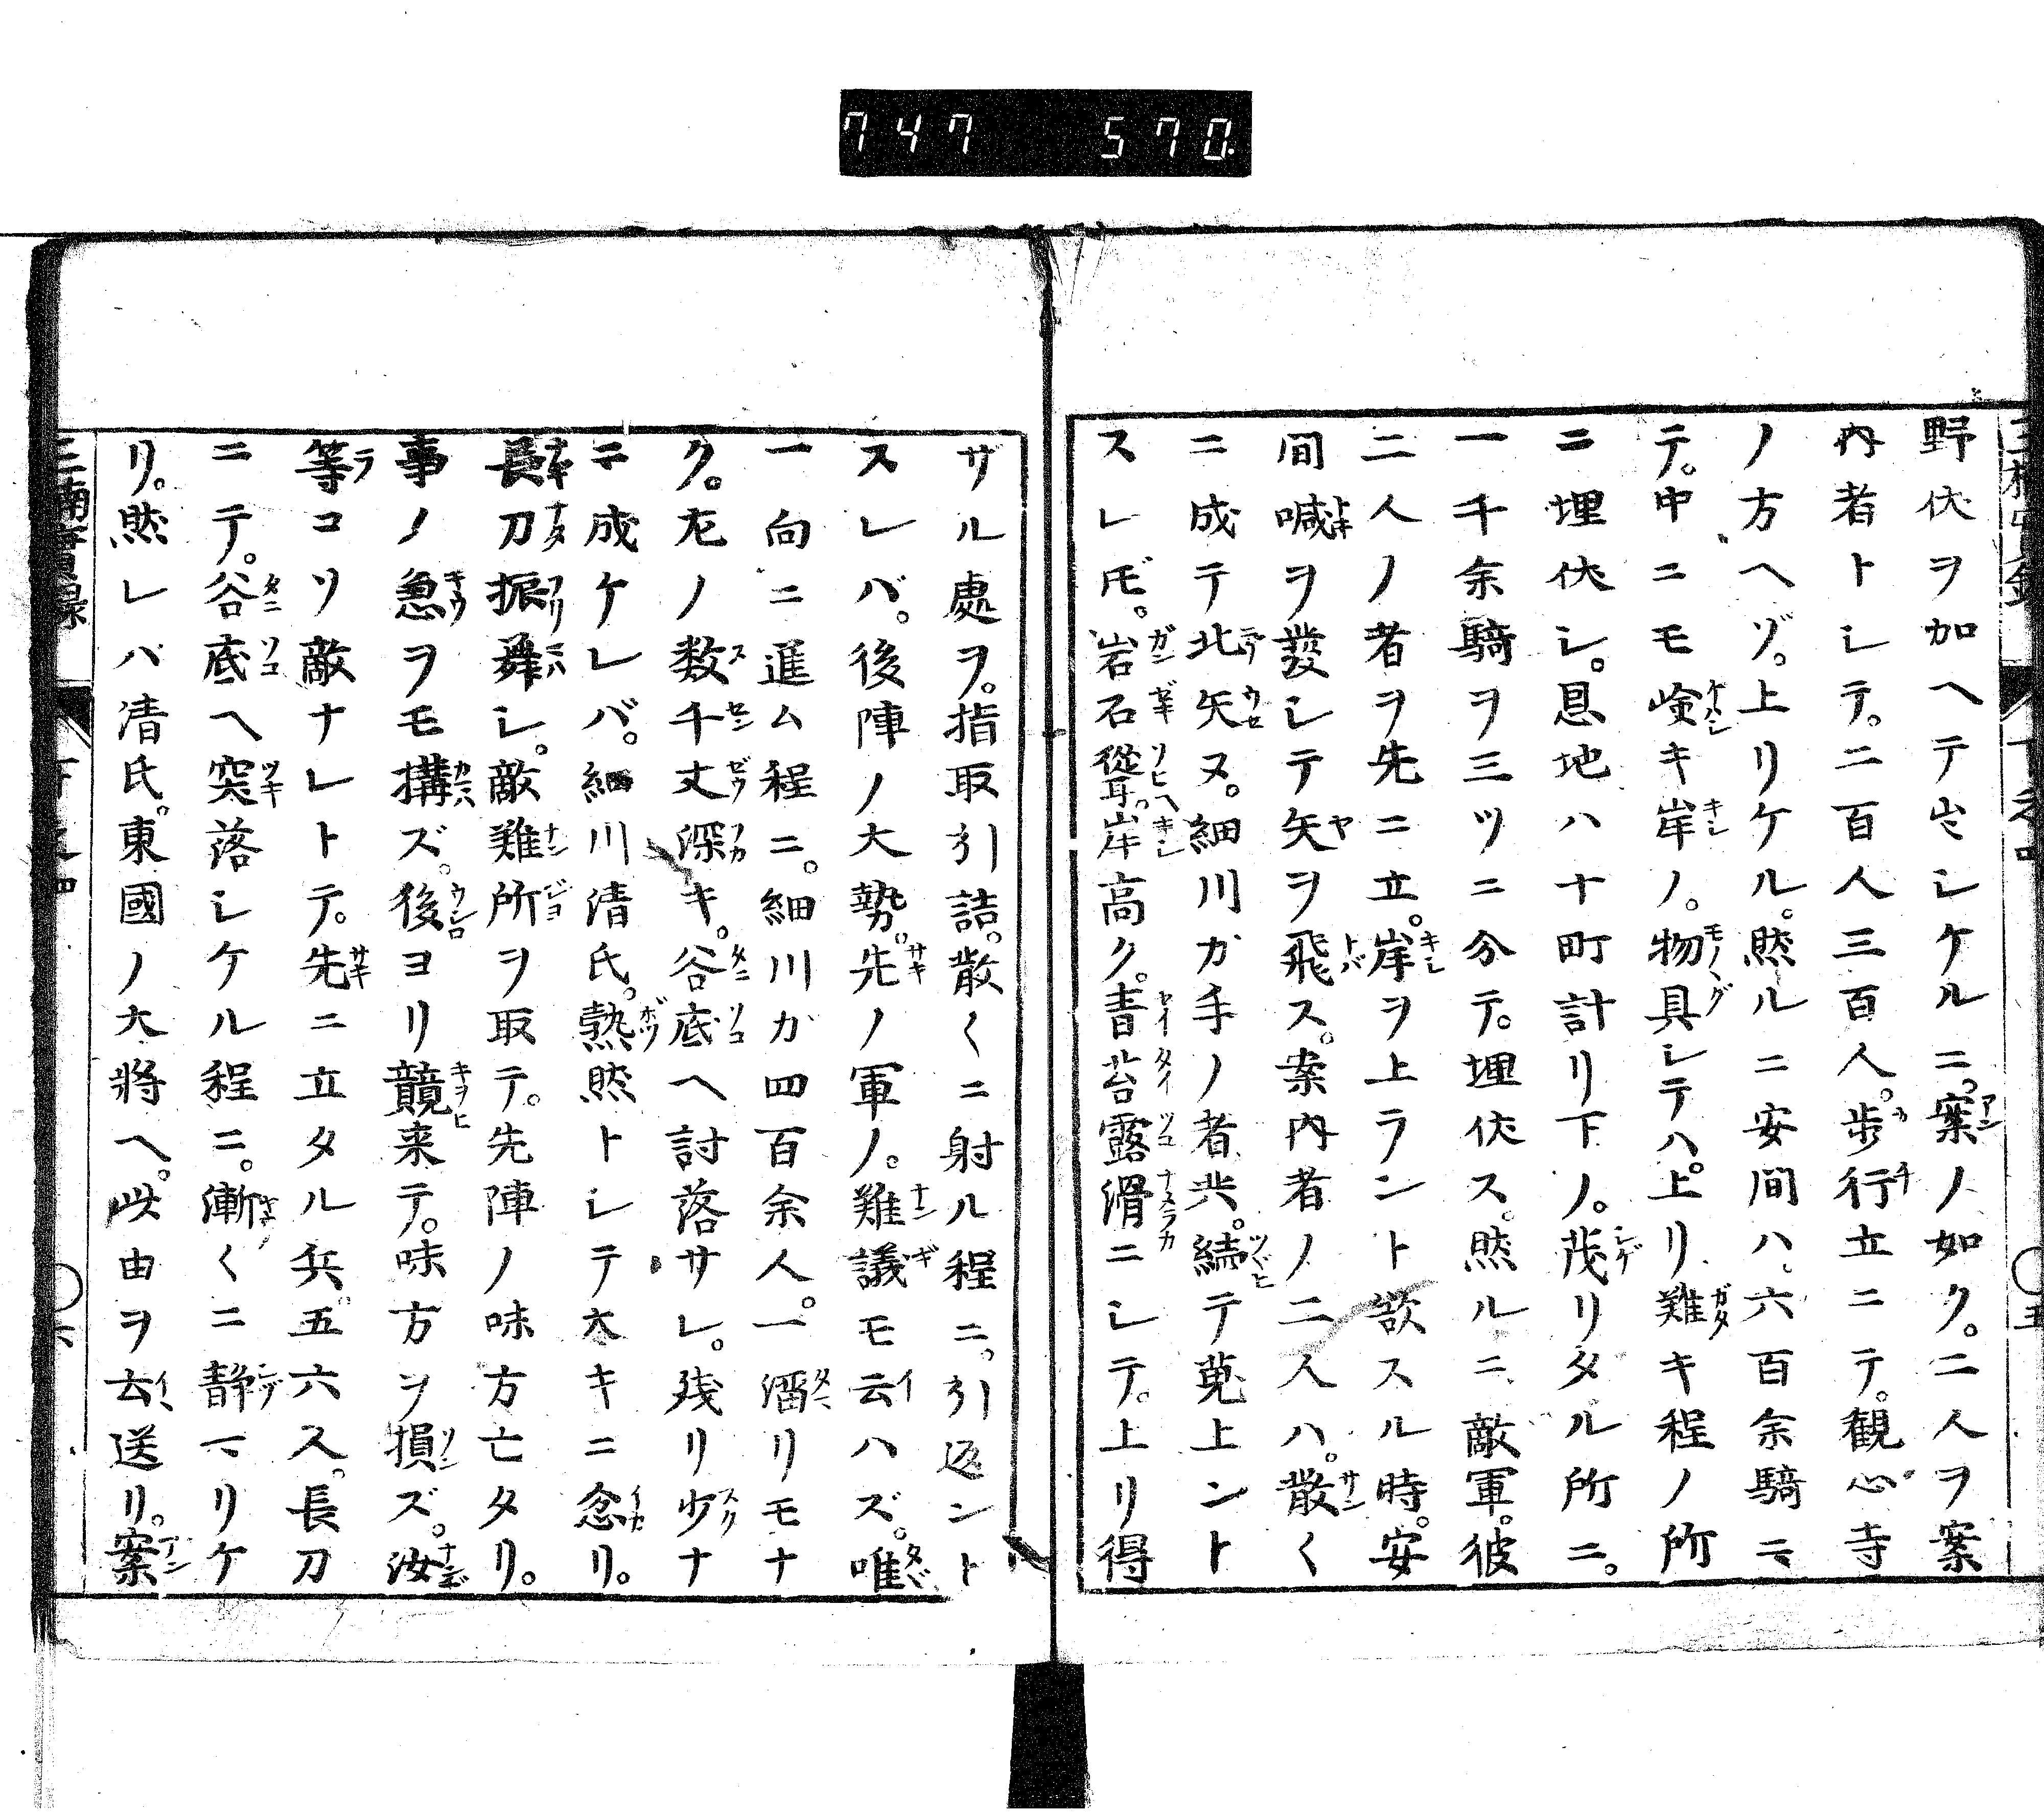 747 570
野伏ヲ加ヘテ出シケルニ。案ノ如ク。二人ヲ案
内者トシテ。二百人三百人。歩行立ニテ。観心寺
ノ方ヘゾ。上リケル。然ルニ安間ハ、六百余騎ニ
テ。中ニモ嶮キ岸ノ。物具シテハ。上リ難キ程ノ所
ニ埋伏シ。恩地ハ十町計リ下ノ。茂リタル所ニ。
一千余騎ヲ三ツニ分テ。埋伏ス。然ルニ、敵軍。彼
二人ノ者ヲ先ニ立。岸ヲ上ラント欲スル時。安
間喊ヲ發シテ矢ヲ飛ス。案内者ノ二人ハ。散〱
ニ成テ北矢ヌ。細川ガ手ノ者共。続テ莵上ント
スレ𪜈。岩石聳。岸高ク。青苔露滑ニシテ。上リ得
サル處ヲ。指取引詰。散〱ニ射ル程ニ。引返ント
スレバ。後陣ノ大勢。先ノ軍ノ。難議モ云ハズ。唯
一向ニ進ム程ニ。細川ガ四百余人。一溜リモナ
ク。左ノ数千丈深キ。谷底ヘ討落サレ。残リ少ナ
ニ成ケレバ。細川清氏。熱然トシテ大キニ忿リ。
長刀振舞シ。敵難所ヲ取テ。先陣ノ味方亡タリ。
事ノ急ヲモ搆ズ。後ヨリ競来テ。味方ヲ損ズ。汝
等コソ敵ナレトテ。先ニ立タル兵五六人。長刀
ニテ。谷底ヘ突落シケル程ニ。漸〱ニ静マリケ
リ。然レバ清氏。東國ノ大將ヘ。此由ヲ云送リ。案
三楠實録
下之四
六